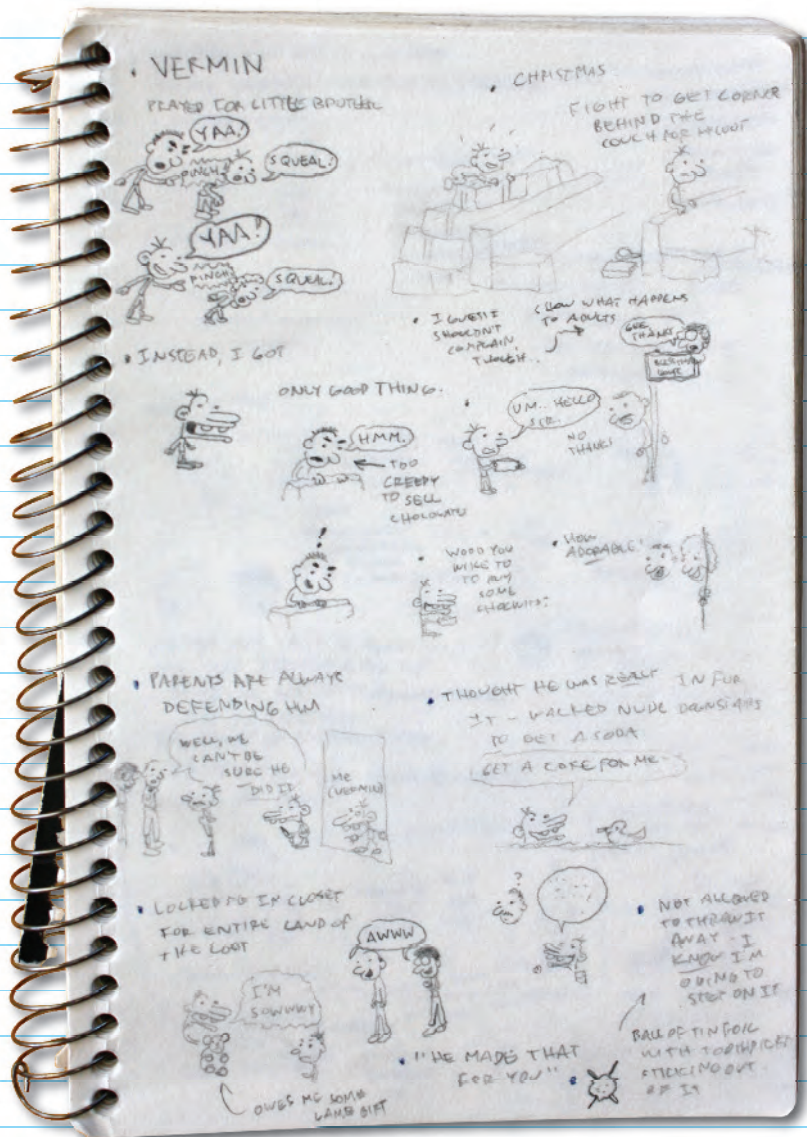 • VERMIN
PRAYED FOR LITTLE BROTHER
YAA!
PINCH
SQUEAL!
YAA!
PINCH
SQUEAL!
• CHRISTMAS
FIGHT TO GET CORNER
BEHIND THE
COUCH FOR MY LOOT
• I GUESS I
SHOULDN'T
COMPLAIN,
THOUGH..
SHOW WHAT HAPPENS
TO ADULTS
GEE,
THANKS
• INSTEAD, I GOT
ONLY GOOD THING.
HMM.
TOO
CREEPY
TO SELL
CHOCOLATES
UM.. HELLO
SIR..
NO
THANKS
!
• WOOD YOU
WIKE TO
TO BUY
SOME
• HOW
ADORABLE!
• PARENTS ARE ALWAYS
DEFENDING HIM
WELL, WE
CAN'T BE
SURE HE
DID IT
ME
(VERMIN)
• THOUGHT HE WAS REALLY IN FOR
IT - WALKED NUDE DOWNSTAIRS
TO GET A SODA
GET A COKE FOR ME
• LOCKED ME IN CLOSET
FOR ENTIRE LAND OF
THE LOST
I'M
SOWWWY
OWES ME SOME
LAME GIFT
AWWW
?
• "HE MADE THAT
FOR YOU"
• NOT ALLOWED
TO THROW IT
AWAY - I
KNOW I'M
GOING TO
STEP ON IT
BALL OF TIN FOIL
WITH TOOTHPICKS
STICKING OUT
OF IT